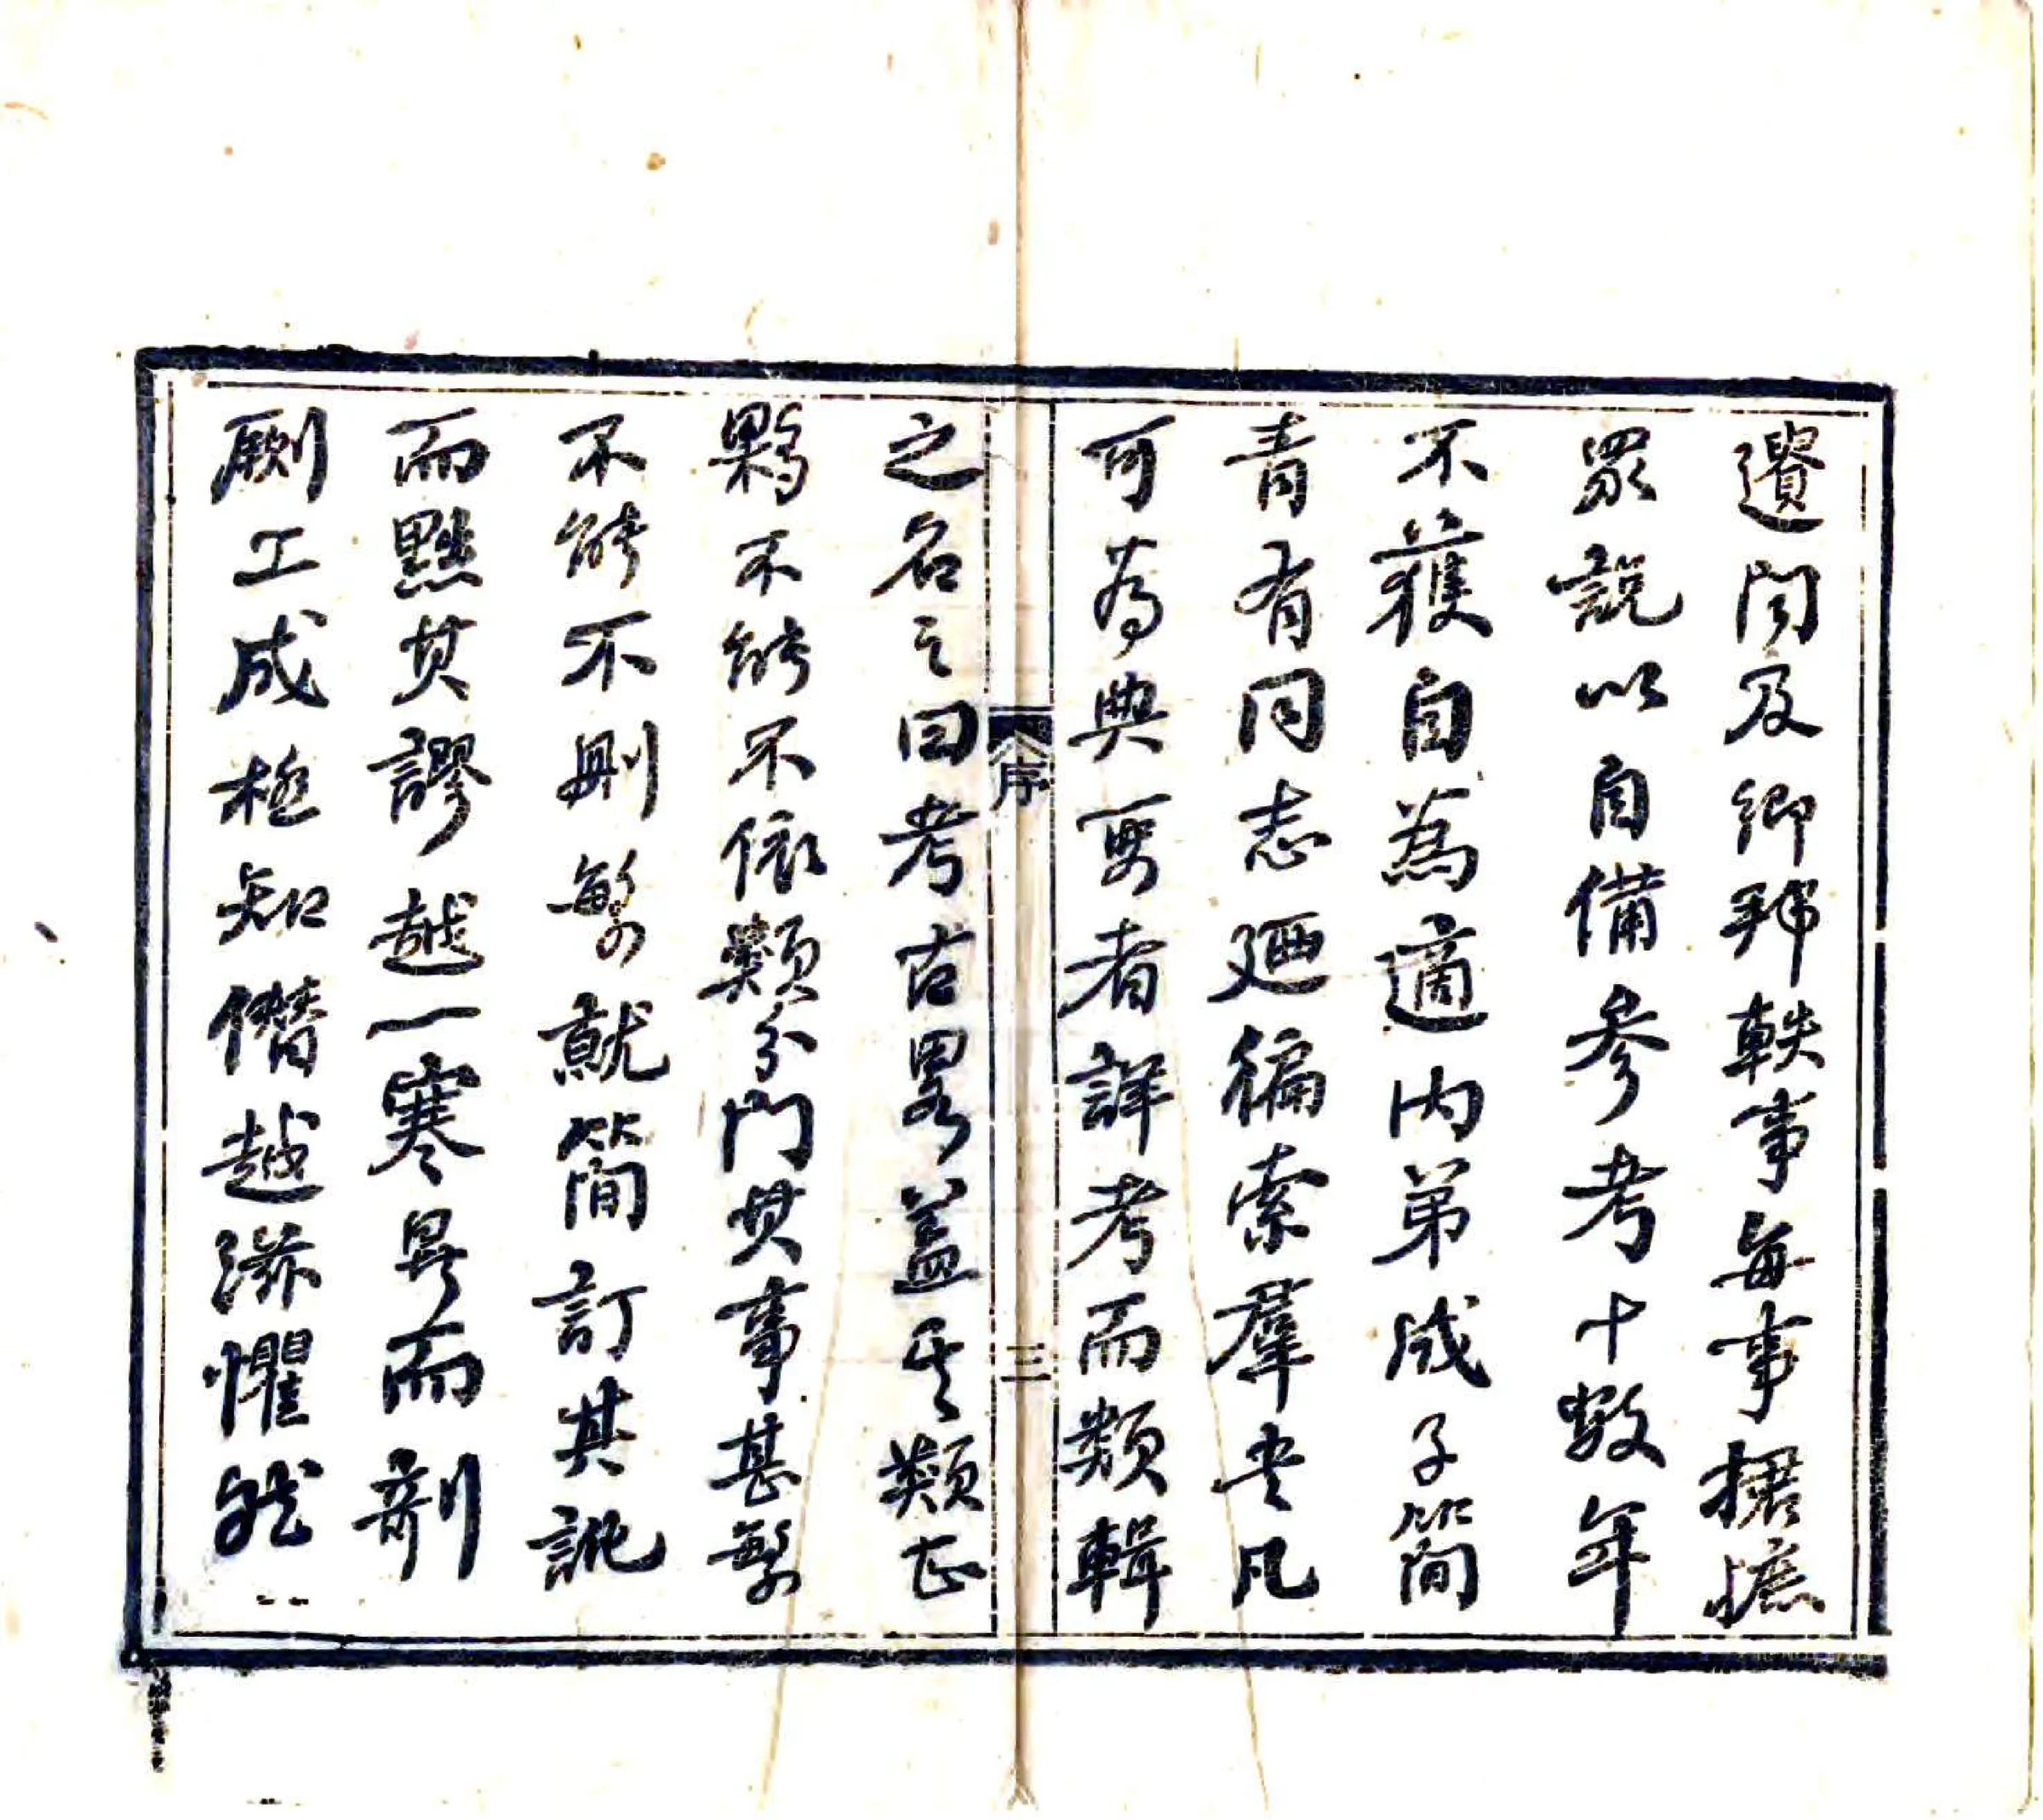 遺聞及鄉稗軼事每事捃摭
眾說以自備參考十數年
不獲自為適內弟成子簡
青有同志廼徧索羣書凡
可為典要者詳考而類輯
序
三
之名之曰考古畧蓋其類甚
夥不能不依類分門其事甚繁
不能不刪繁就簡訂其訛
而黜其謬越一寒暑而剞
劂工成極知僭越滋懼然